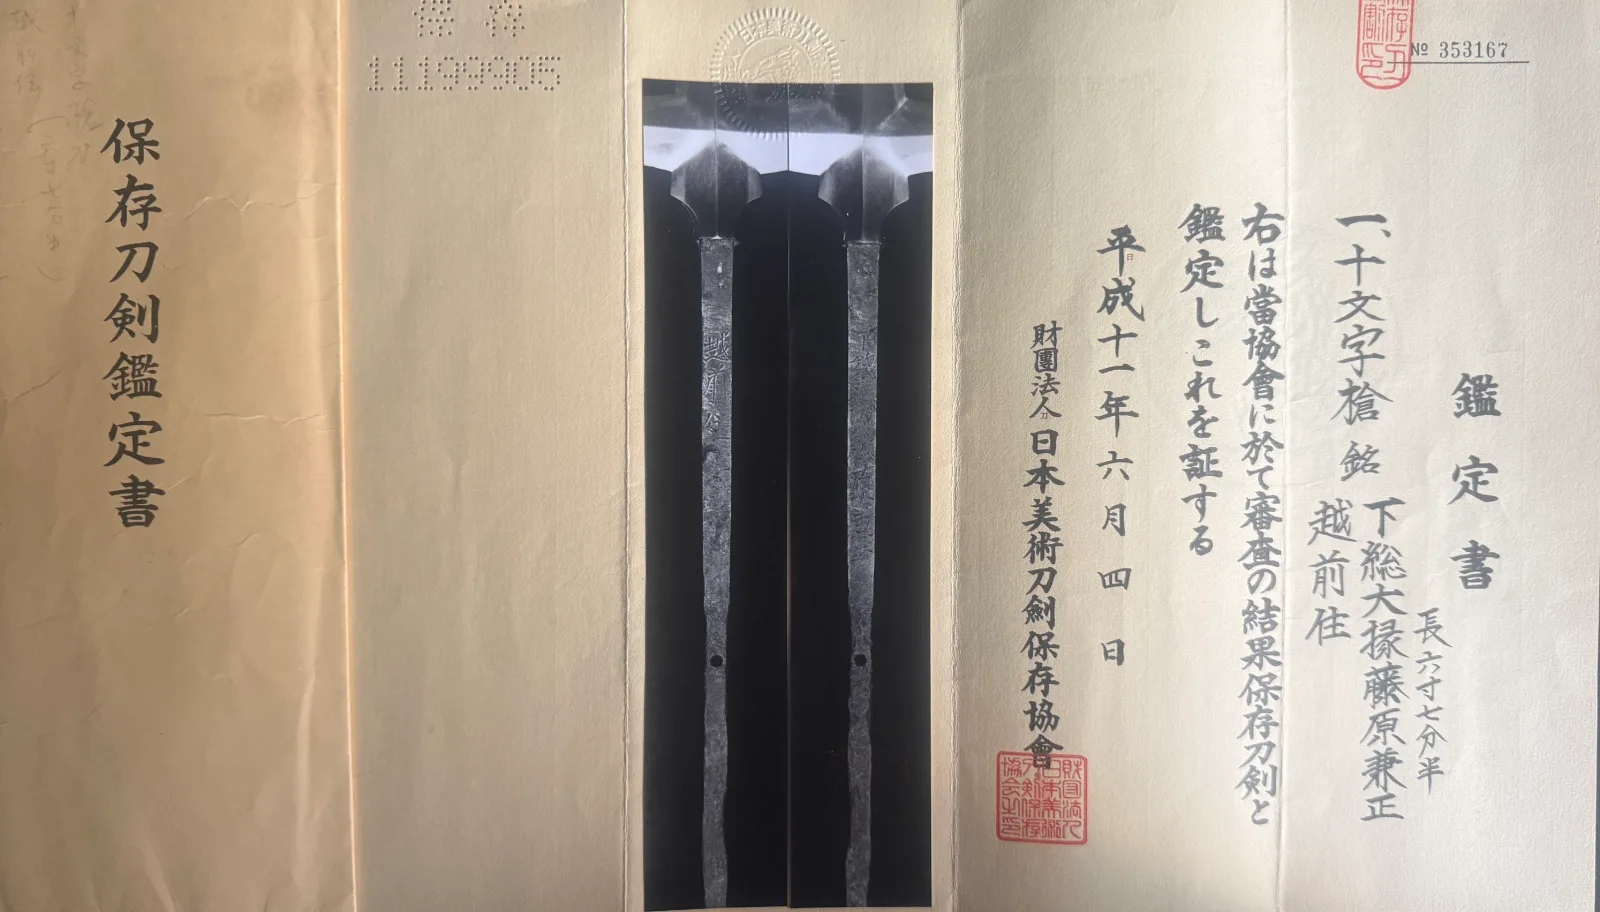 No 353167
鑑定書
長六寸七分半
一、十文字槍 銘 下総大掾藤原兼正
越前住
右は當協會に於て審査の結果保存刀剣と
鑑定しこれを証する
平成十一年六月四日
財團法人日本美術刀劍保存協會
保存
11199905
保存刀剣鑑定書